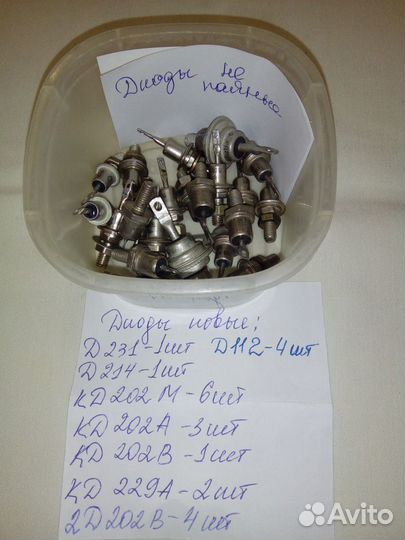 Диоды не
паянные
Диоды новые:
Д231-1шт Д112-4шт
Д214-1шт
КД202М-6шт
КД202А-3шт
КД202В-1шт
КД229А-2шт
2Д202В-4шт
Avito